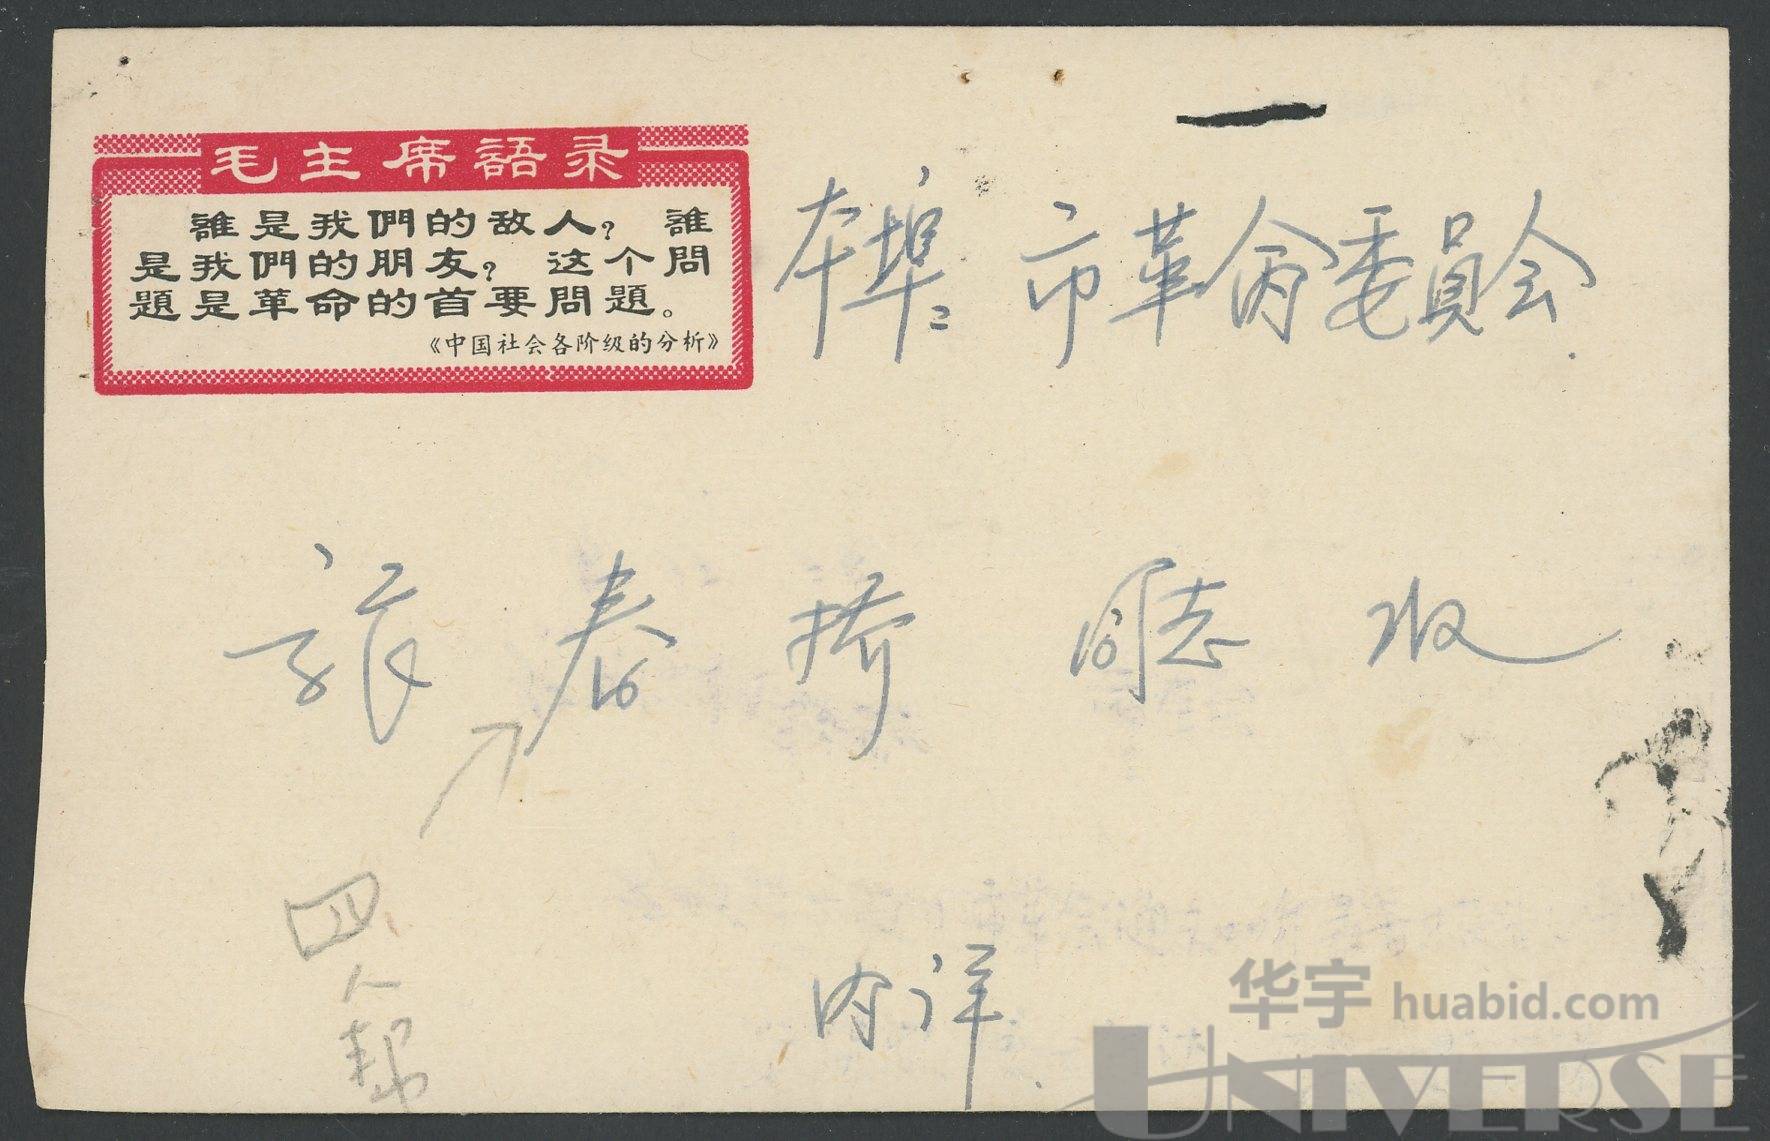 毛主席語录
誰是我們的敌人？誰
是我們的朋友？这个問
題是革命的首要問題。
《中国社会各阶级的分析》
本埠：市革命委員会
張春橋 同志 收
四人帮
内详
华宇 huabid.com
UNIVERSE